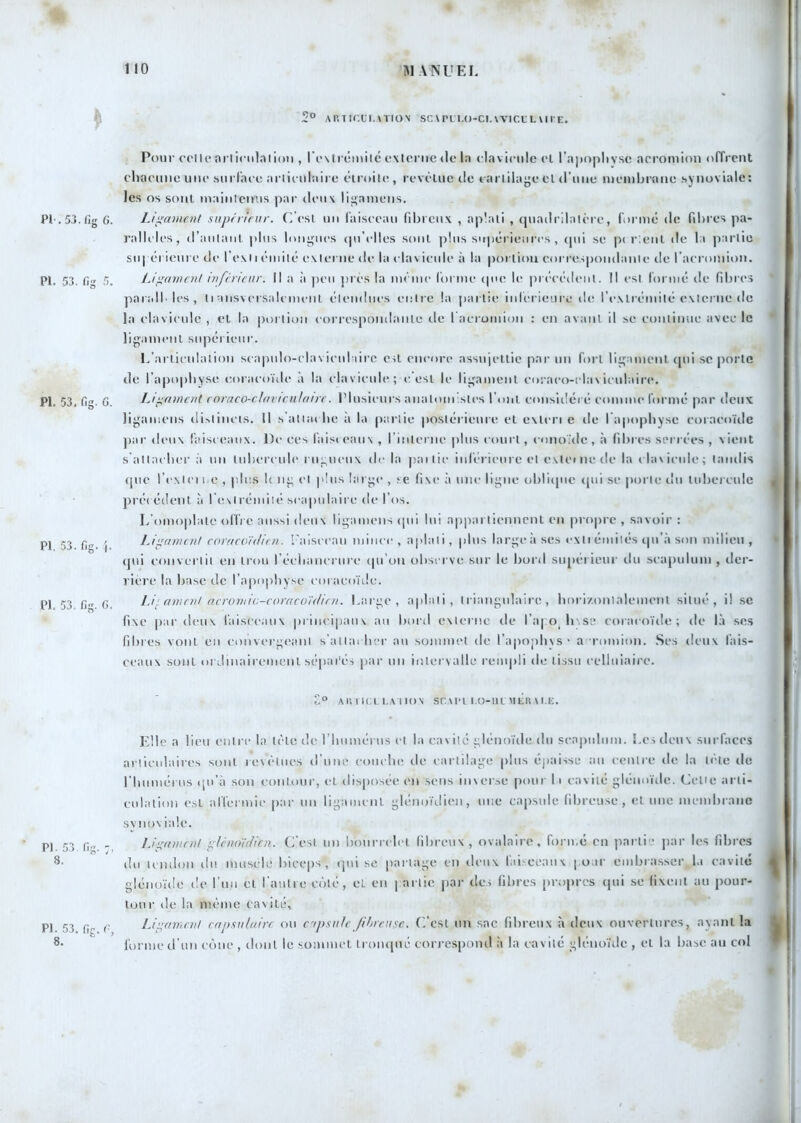 110 MANUEL
2° ARTICULATION SCAPULO-CLAVICULAIRE.
Pour cette articulation, l'extrémité externe de la clavicule et l'apophyse acromion offrent
chacune une surface articulaire étroite, revêtue de cartilage et d'une membrane synoviale:
les os sont maintenus par deux ligamens.
Pl. 53. fig 6. Ligament supérieur. C'est un faisceau fibreux, aplati, quadrilatère, formé de fibres pa-
rallèles, d'autant plus longues qu'elles sont plus supérieures, qui se portent de la partie
supérieure de l'extrémité externe de la clavicule à la portion correspondante de l'acromion.
Pl. 53. fig 5. Ligament inférieur. Il a à peu près la même forme que le précédent. Il est formé de fibres
parallèles, transversalement étendues entre la partie inférieure de l'extrémité externe de
la clavicule, et la portion correspondante de l'acromion : en avant il se continue avec le
ligament supérieur.
L'articulation scapulo-claviculaire est encore assujettie par un fort ligament qui se porte
de l'apophyse coracoïde à la clavicule; c'est le ligament coraco-claviculaire.
Pl. 53, fig. 6. Ligament coraco-claviculaire. Plusieurs anatomistes l'ont considéré comme formé par deux
ligamens distincts. Il s'attache à la partie postérieure et externe de l'apophyse coracoïde
par deux faisceaux. De ces faisceaux, l'interne plus court, conoïde, à fibres serrées, vient
s'attacher à un tubercule rugueux de la partie inférieure et externe de la clavicule; tandis
que l'externe, plus long et plus large, se fixe à une ligne oblique qui se porte du tubercule
précédent à l'extrémité scapulaire de l'os.
L'omoplate offre aussi deux ligamens qui lui appartiennent en propre, savoir :
Pl. 53. fig. 4. Ligament coracoïdien. Faisceau mince, aplati, plus large à ses extrémités qu'à son milieu,
qui convertit en trou l'échancrure qu'on observe sur le bord supérieur du scapulum, der-
rière la base de l'apophyse coracoïde.
Pl. 53. fig. 6. Ligament acromio-coracoïdien. Large, aplati, triangulaire, horizontalement situé, il se
fixe par deux faisceaux principaux au bord externe de l'apophyse coracoïde; de là ses
fibres vont en convergeant s'attacher au sommet de l'apophyse acromion. Ses deux fais-
ceaux sont ordinairement séparés par un intervalle rempli de tissu cellulaire.
2° ARTICULATION SCAPULO-HUMÉRALE.
Elle a lieu entre la tête de l'humérus et la cavité glénoïde du scapulum. Les deux surfaces
articulaires sont revêtues d'une couche de cartilage plus épaisse au centre de la tête de
l'humérus qu'à son contour, et disposée en sens inverse pour la cavité glénoïde. Cette arti-
culation est affermie par un ligament glénoïdien, une capsule fibreuse, et une membrane
synoviale.
Pl. 53 fig. 7, 8. Ligament glénoïdien. C'est un bourrelet fibreux, ovalaire, formé en partie par les fibres
du tendon du muscle biceps, qui se partage en deux faisceaux pour embrasser la cavité
glénoïde de l'un et l'autre côté, et en partie par des fibres propres qui se fixent au pour-
tour de la même cavité,
Pl. 53. fig. 6, 8. Ligament capsulaire ou capsule fibreuse. C'est un sac fibreux à deux ouvertures, ayant la
forme d'un cône, dont le sommet tronqué correspond à la cavité glénoïde, et la base au col